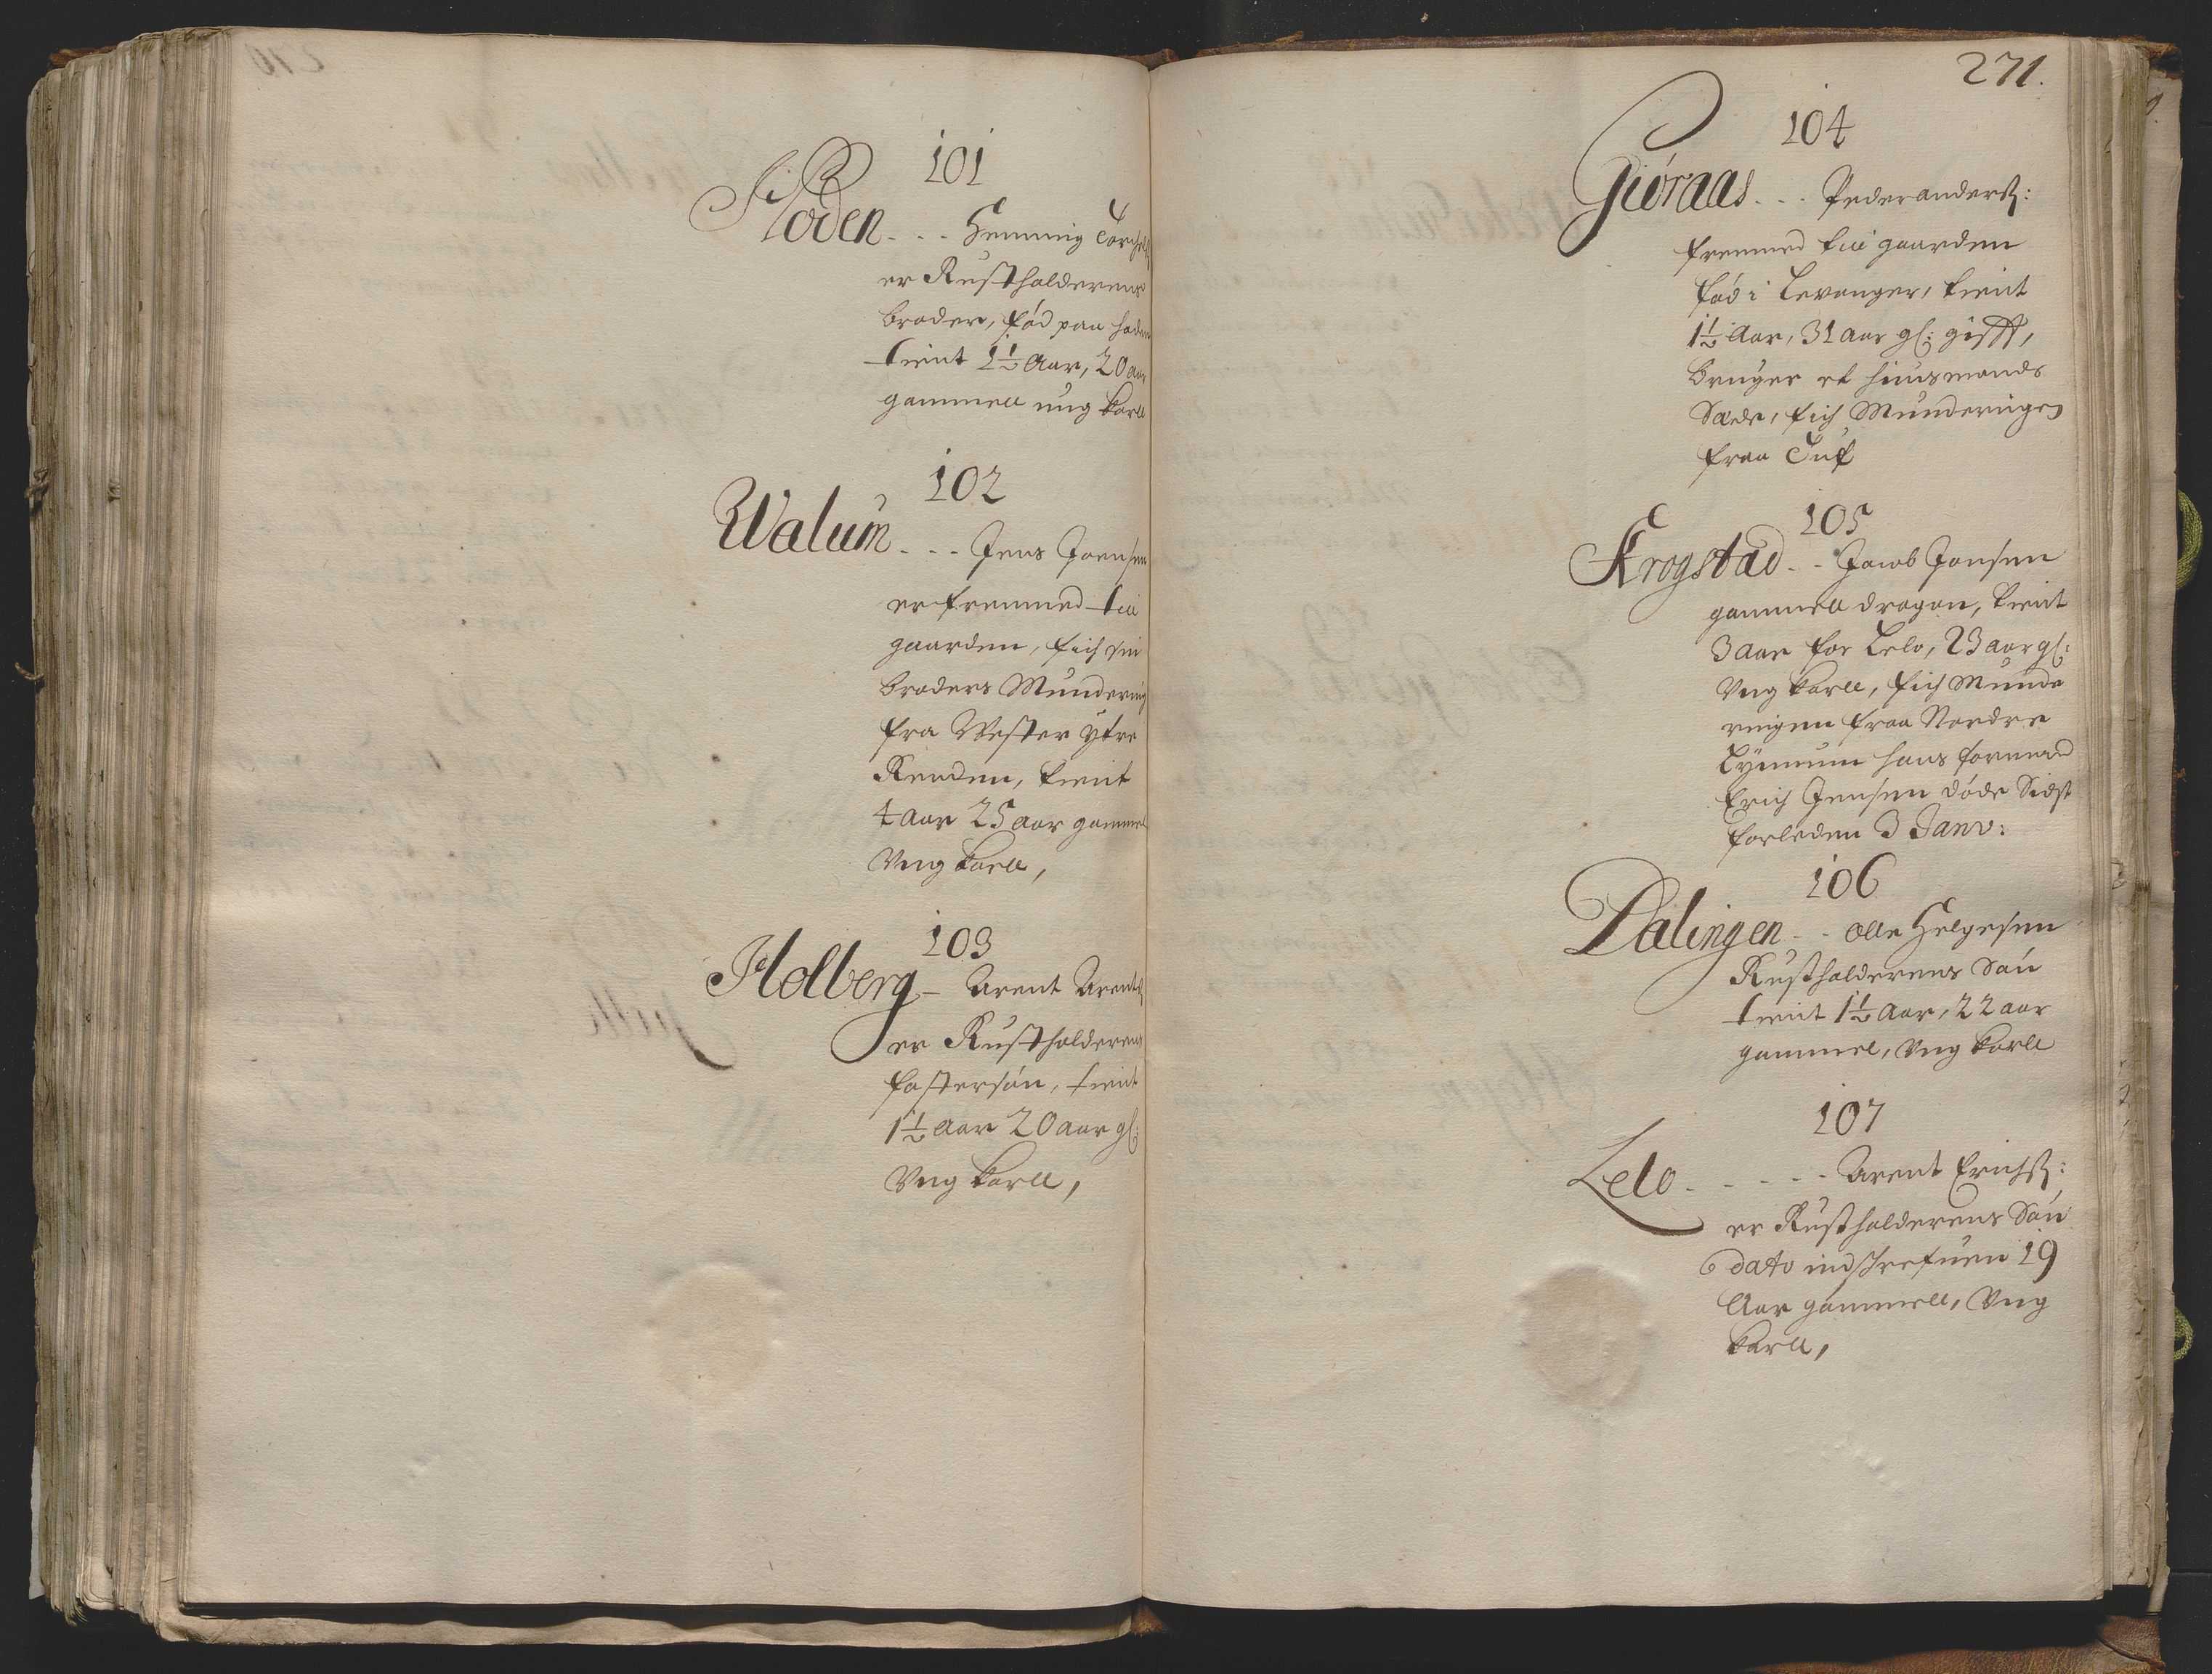 101
Hoden - - - Hemmig
er Rustholderens
broder, fød paa hoden
tient 1½ Aar, 20 aar
gammell ung karll
102
Walum - - - Jens Joensen
er fremmed till
gaarden, fich sin
broders Mundering
fra Wester ytre
Kenden, tient
4 Aar 25 aar gammel
Vng karll,
103
Holberg - Arent Arents
er Rustholderens
fostersøn, tient
1½ Aar 20 aar gl:
Vng karll,
271.
104
Giøraas - - - Peder anderss:
fremmed till gaarden
fød i Levanger, tient
1½ Aar, 31 aar gl: gifft,
bruger et huusmands
Sæde, fich Munderingen
fraa Tuf
105
Krogstad - - Jacob Jonsen
gammell dragon, tient
3 aar for Lelo, 23 aar gl:
Vng karll, fich Munde
ringen fraa Nordre
Lynnum hans formand
Erich Jensen døde Sidst
forleden 3 Janv:
106
Dalingen - - Olle Helgesen
Rustholderens Søn
tient 1½ Aar, 22 aar
gammel, Vng karll
107
Lelo - - - - - Arent Erichss:
er Rustholderens Søn
dato indschrefuen 19
Aar gammell, Vng
karll,